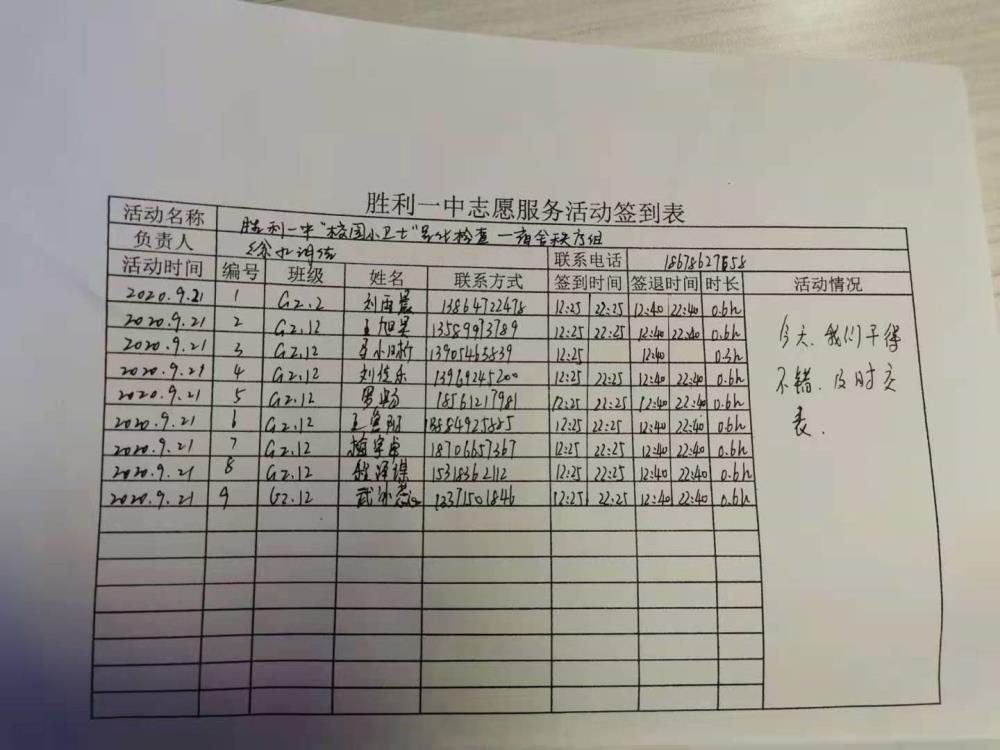 胜利一中志愿服务活动签到表
活动名称 胜利一中"校园小卫士" 检查 一宿舍秩序组
负责人 联系电话 18678627658
活动时间 编号 班级 姓名 联系方式 签到时间 签退时间 时长 活动情况
2020.9.21 1 G2.2 刘雨晨 13864722478 12:25 22:25 12:40 22:40 0.6h
2020.9.21 2 G2.12 13589973789 12:25 22:25 12:40 22:40 0.6h
2020.9.21 3 G2.12 13905465839 12:25 12:40 0.3h
2020.9.21 4 G2.12 刘佳乐 13969245200 12:25 22:25 12:40 22:40 0.6h
2020.9.21 5 G2.12 18561217981 12:25 22:25 12:40 22:40 0.6h
2020.9.21 6 G2.12 12:25 22:25 12:40 22:40 0.6h
2020.9.21 7 G2.12 18706657367 12:25 22:25 12:40 22:40 0.6h
2020.9.21 8 G2.12 程泽谋 15318362112 12:25 22:25 12:40 22:40 0.6h
2020.9.21 9 G2.12 13371501846 12:25 22:25 12:40 22:40 0.6h
今天,我们干得
不错.及时交
表.